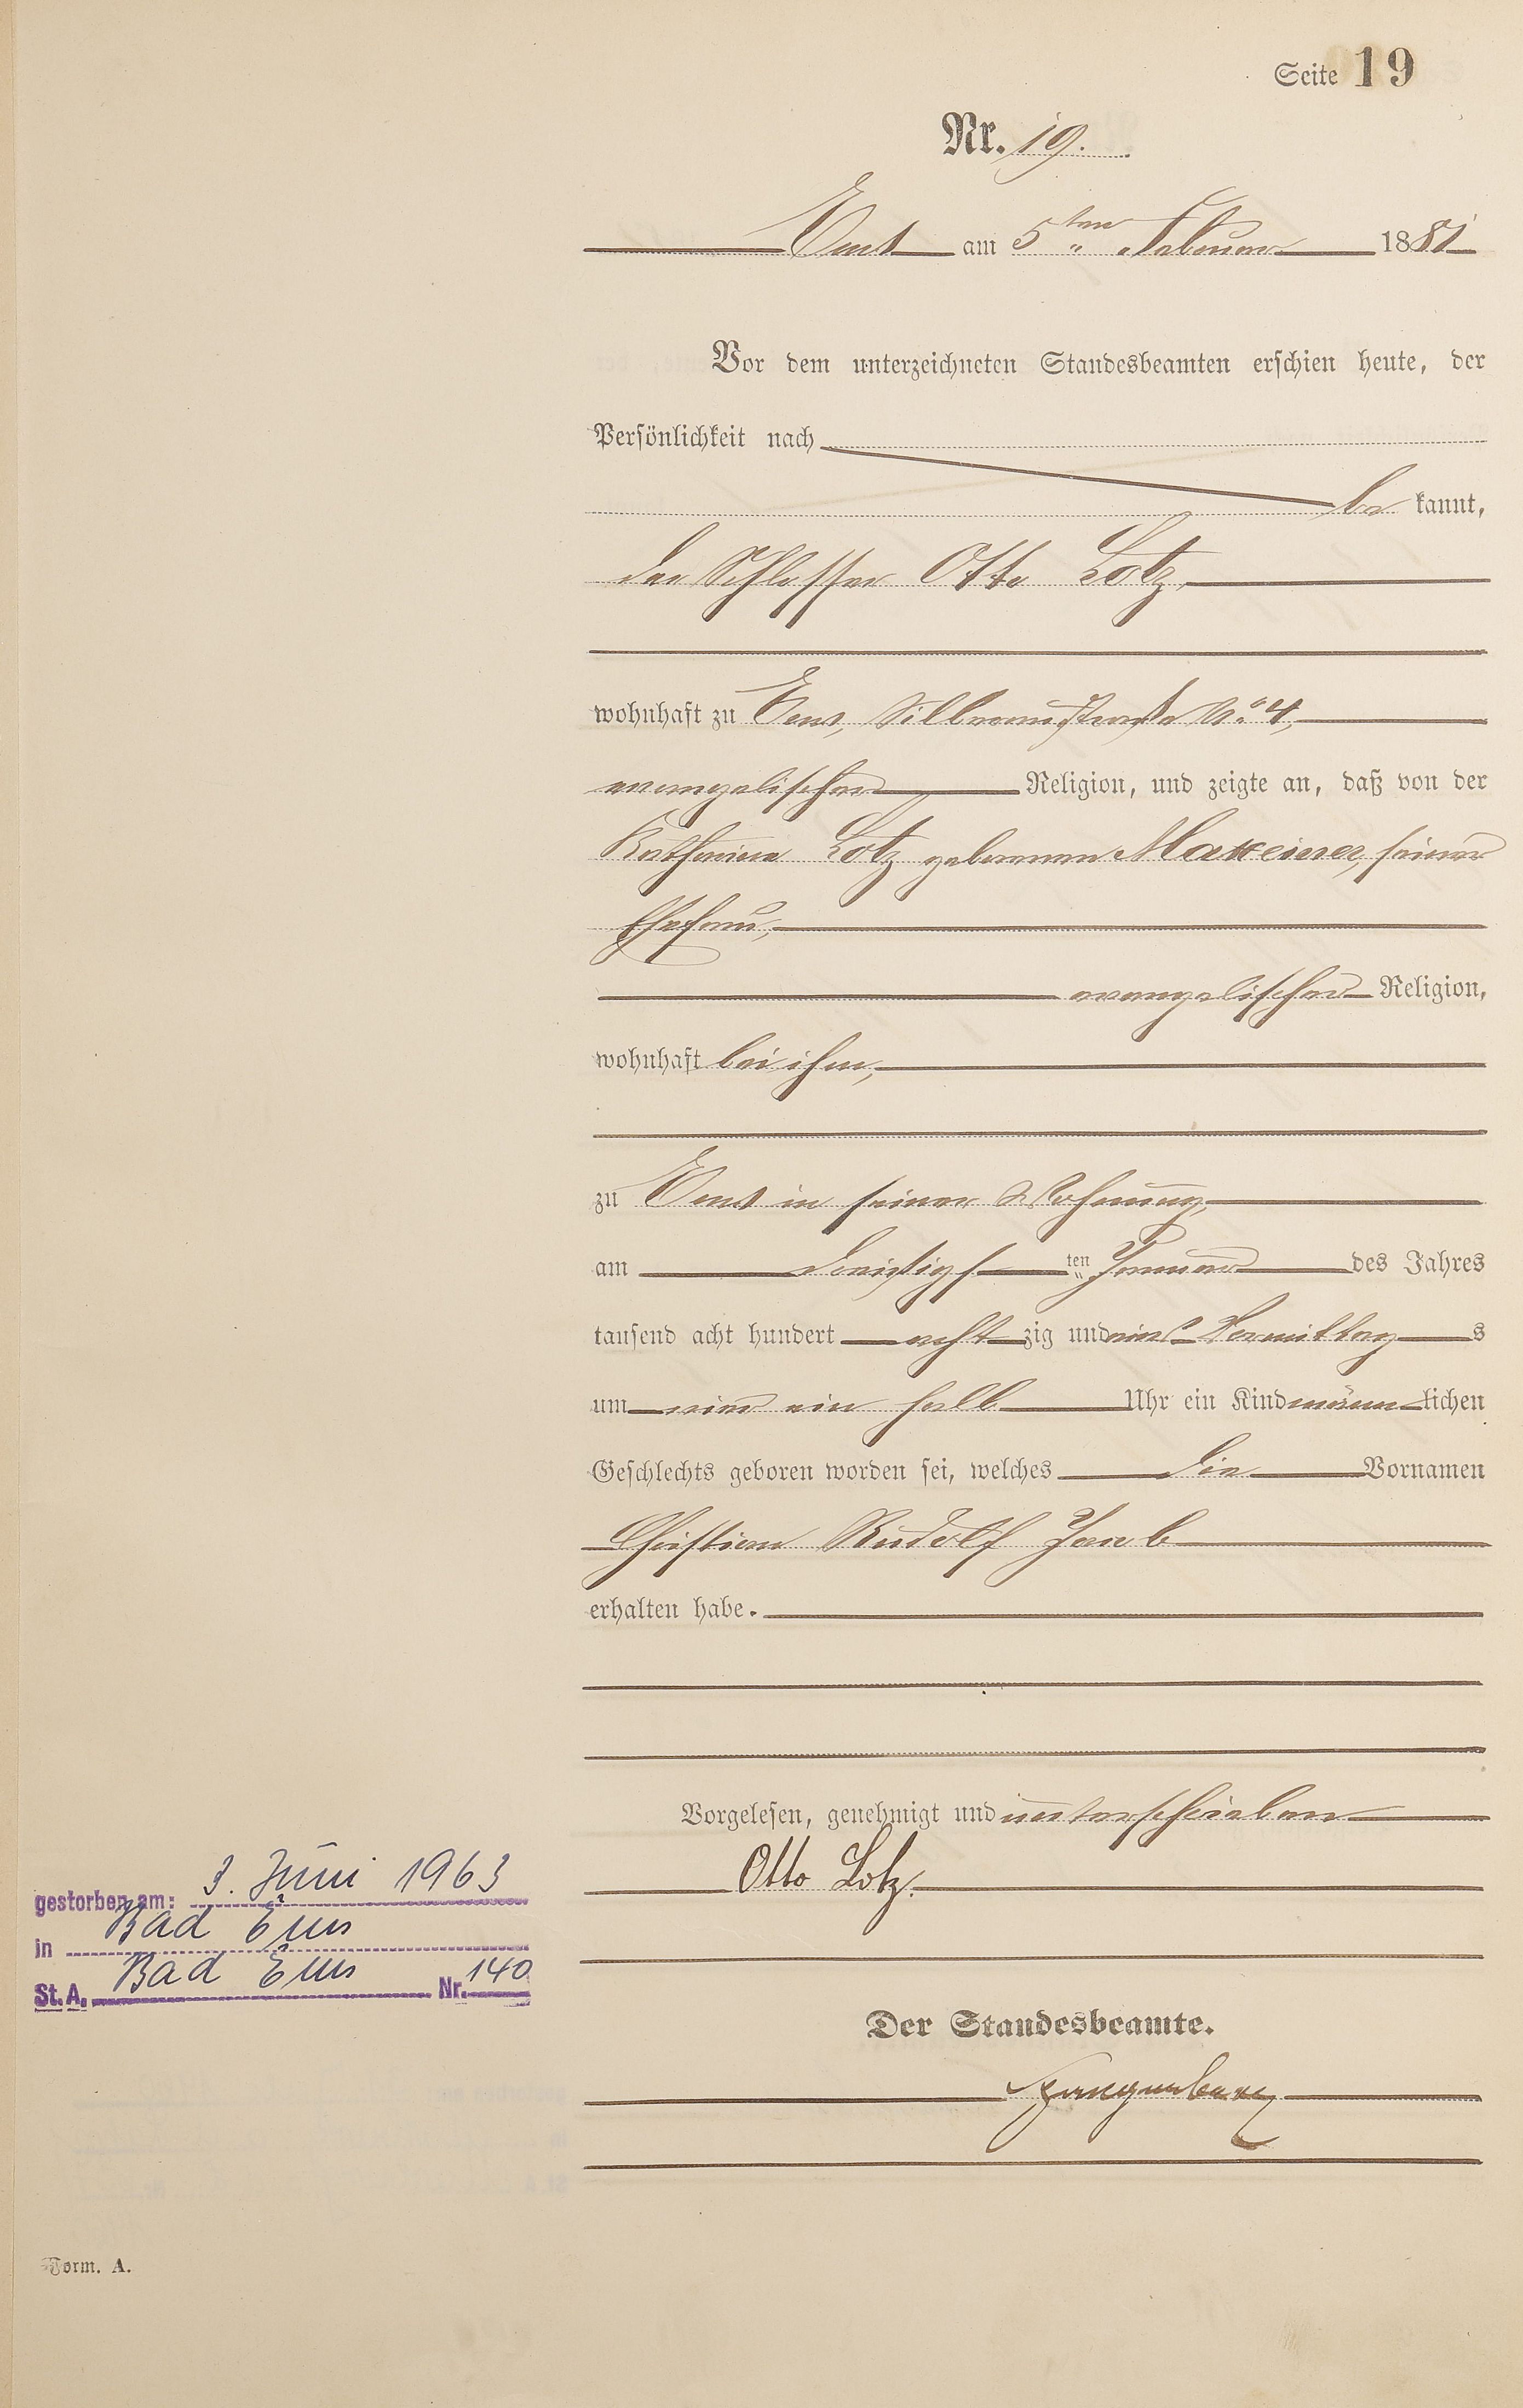 Seite 19
Nr. 19.
Ems am 5ten Februar 1881
Vor dem unterzeichneten Standesbeamten erschien heute, der
Persönlichkeit nach
be kannt,
der Schlosser Otto Lotz,
wohnhaft zu Ems, Silberaustraße No 4,
evangelischer Religion, und zeigte an, daß von der
Katharina Lotz geborenen Maxeiner, seiner
Ehefrau,
evangelischer Religion,
wohnhaft bei ihm,
zu Ems in seiner Wohnung,
am dreißigsten Januar des Jahres
tausend acht hundert acht zig und eins Vormittags
um vier ein halb Uhr ein Kind männlichen
Geschlechts geboren worden sei, welches die Vornamen
Christian Rudolf Jacob
erhalten habe.
Vorgelesen, genehmigt und unterschrieben
Otto Lotz.
gestorben am: 3. Juni 1963
in Bad Ems
St. A. Bad Ems Nr. 140
Der Standesbeamte.
Spangenberg
Form. A.